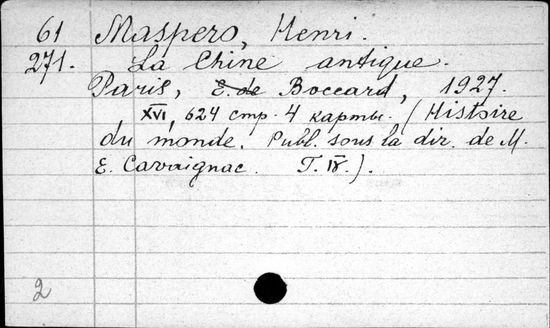 61 Maspero, Henri.
271. La Chine antique.
Paris, E. de Boccard, 1927.
XVI, 624 стр. 4 карты. (Histoire
du monde. Publ. sous la dir. de M.
E. Cavaignac. T. IV.).
2